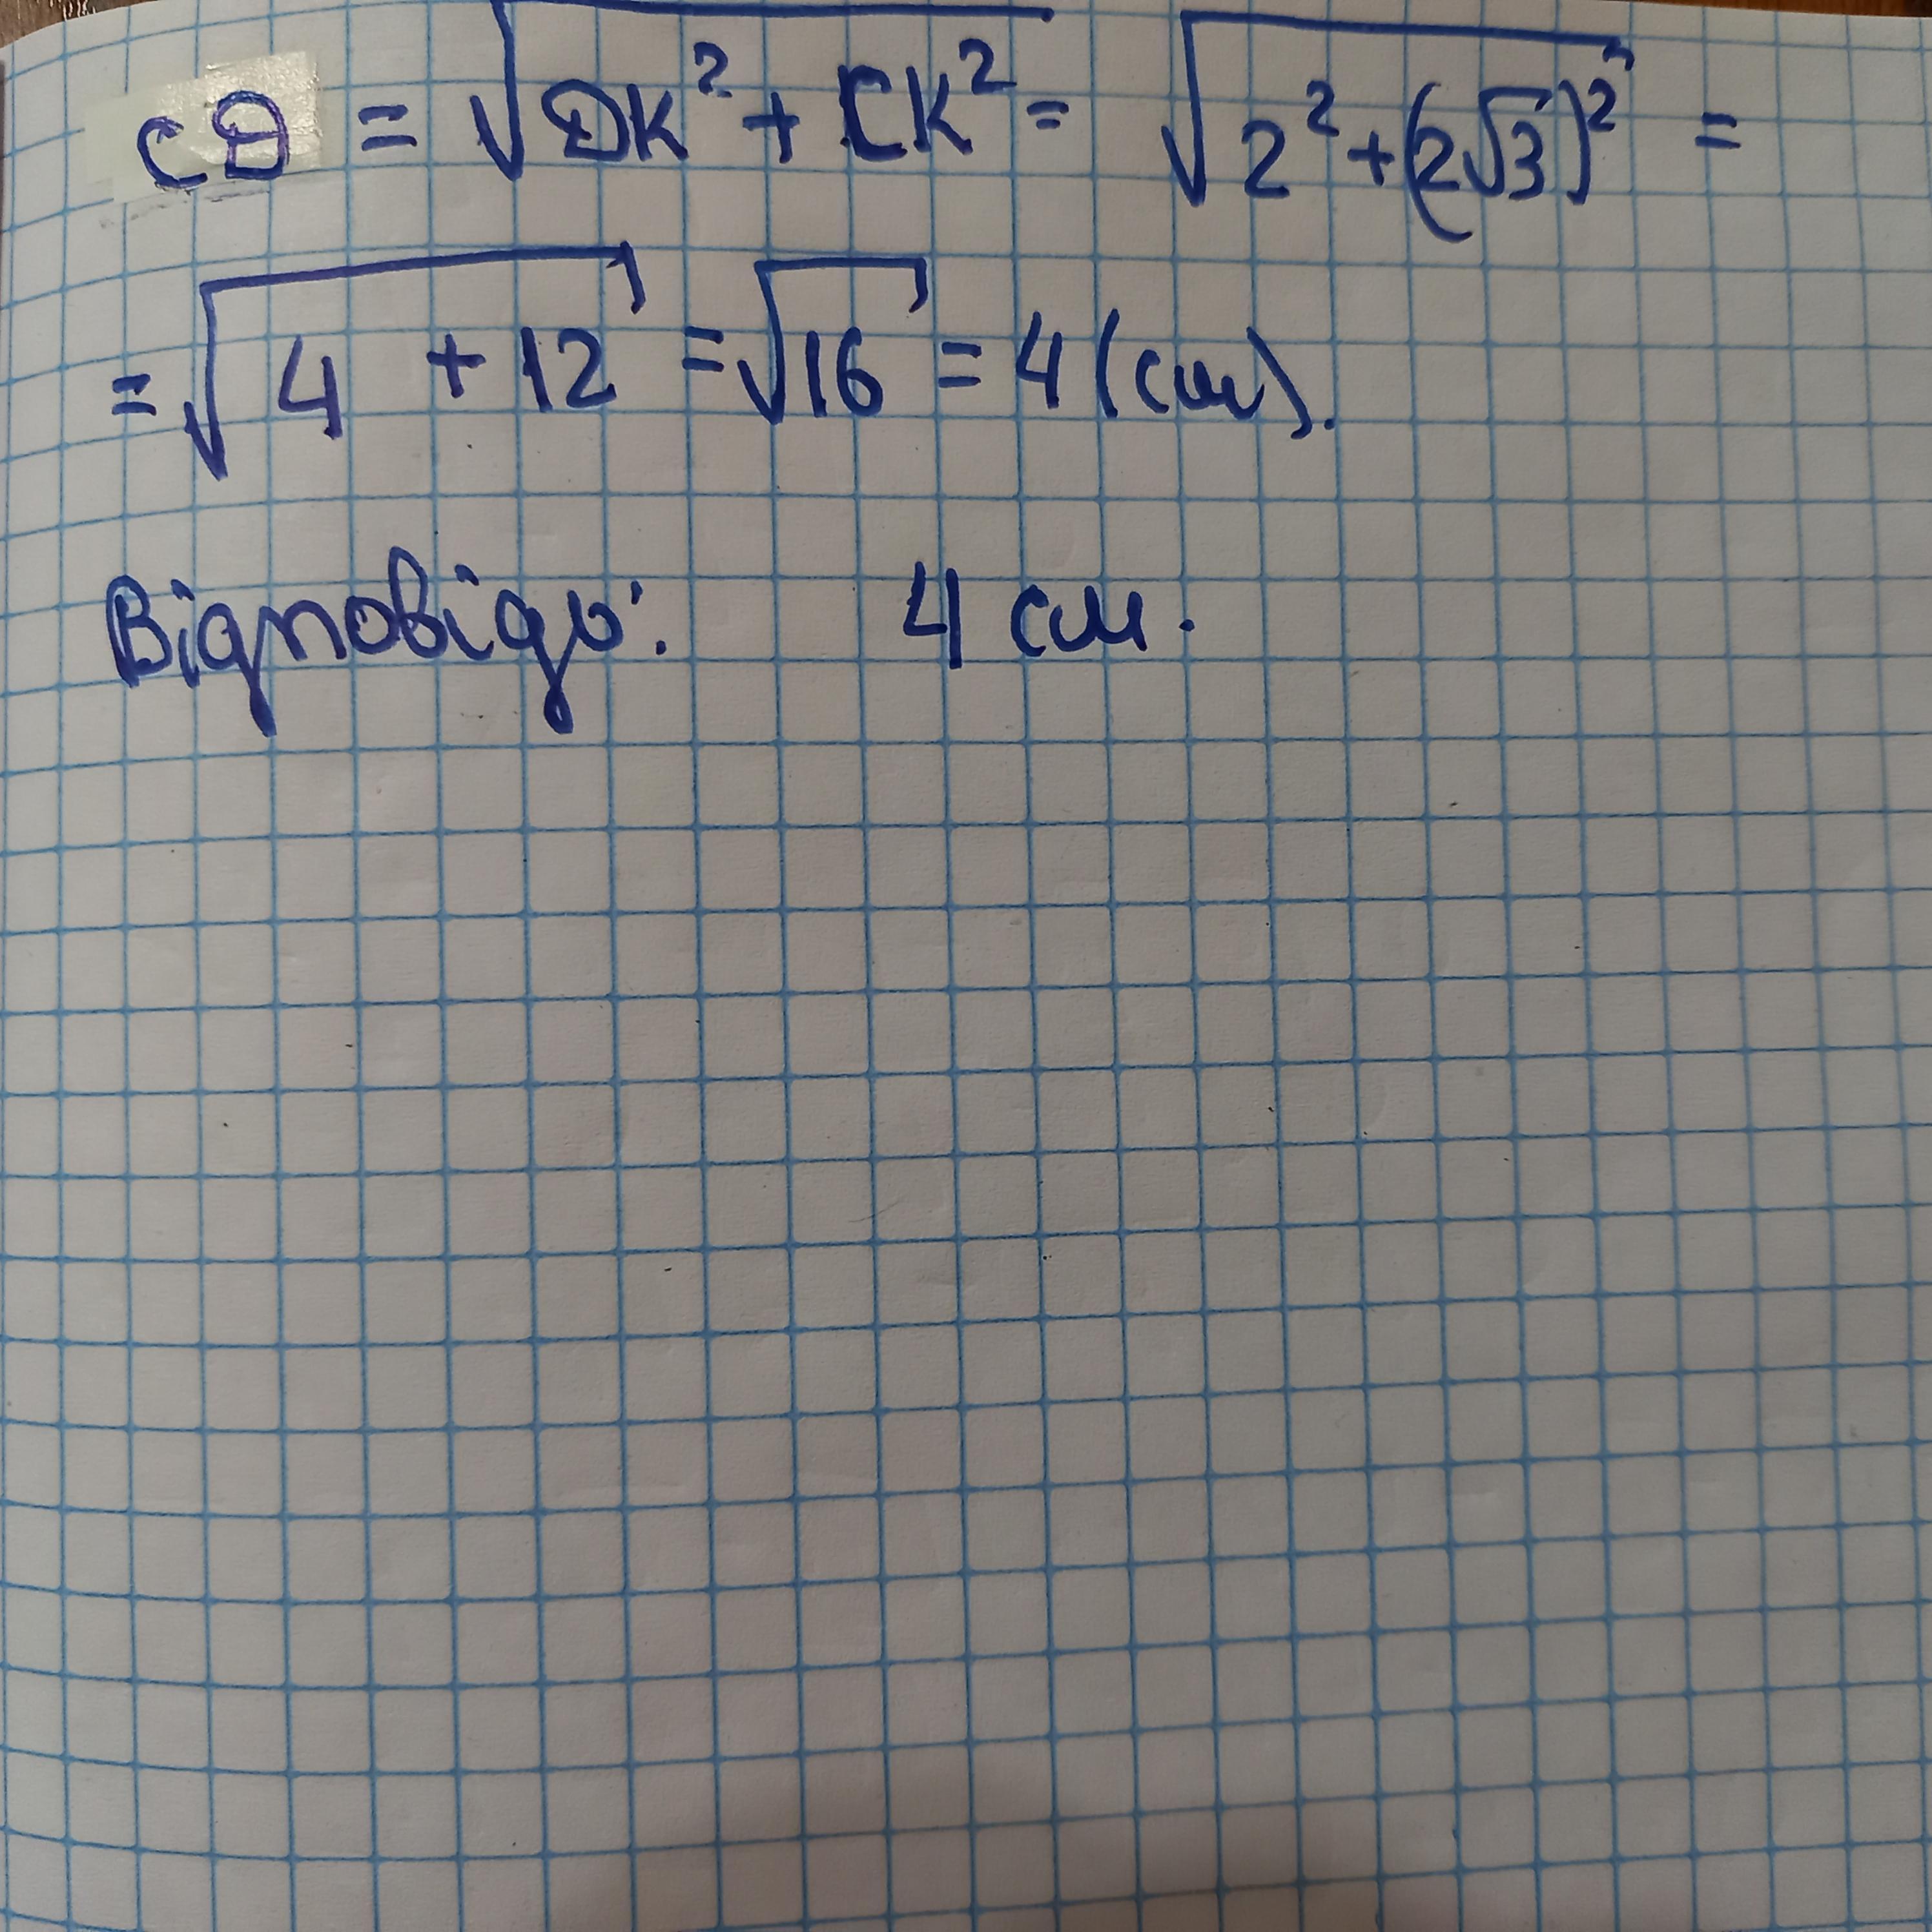 CD = √DK² + CK² = √2² + (2√3)² =
= √4 + 12 = √16 = 4 (см).
Відповідь: 4 см.